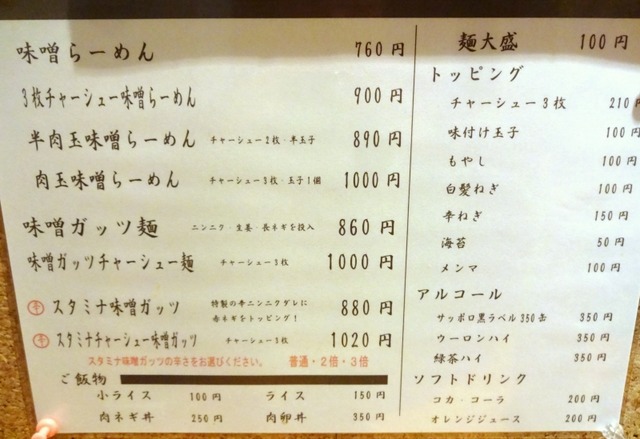 味噌らーめん 760円
3枚チャーシュー味噌らーめん 900円
半肉玉味噌らーめん チャーシュー2枚・半玉子 890円
肉玉味噌らーめん チャーシュー3枚・玉子1個 1000円
味噌ガッツ麺 ニンニク・生姜・長ネギを投入 860円
味噌ガッツチャーシュー麺 チャーシュー3枚 1000円
辛 スタミナ味噌ガッツ 特製の辛ニンニクダレに
赤ネギをトッピング! 880円
辛 スタミナチャーシュー味噌ガッツ チャーシュー3枚 1020円
スタミナ味噌ガッツの辛さをお選びください。 普通・2倍・3倍
ご飯物
小ライス 100円 ライス 150円
肉ネギ丼 250円 肉卵丼 350円
麺大盛 100円
トッピング
チャーシュー3枚 210円
味付け玉子 100円
もやし 100円
白髪ねぎ 100円
辛ねぎ 150円
海苔 50円
メンマ 100円
アルコール
サッポロ黒ラベル350缶 350円
ウーロンハイ 350円
緑茶ハイ 350円
ソフトドリンク
コカ・コーラ 200円
オレンジジュース 200円